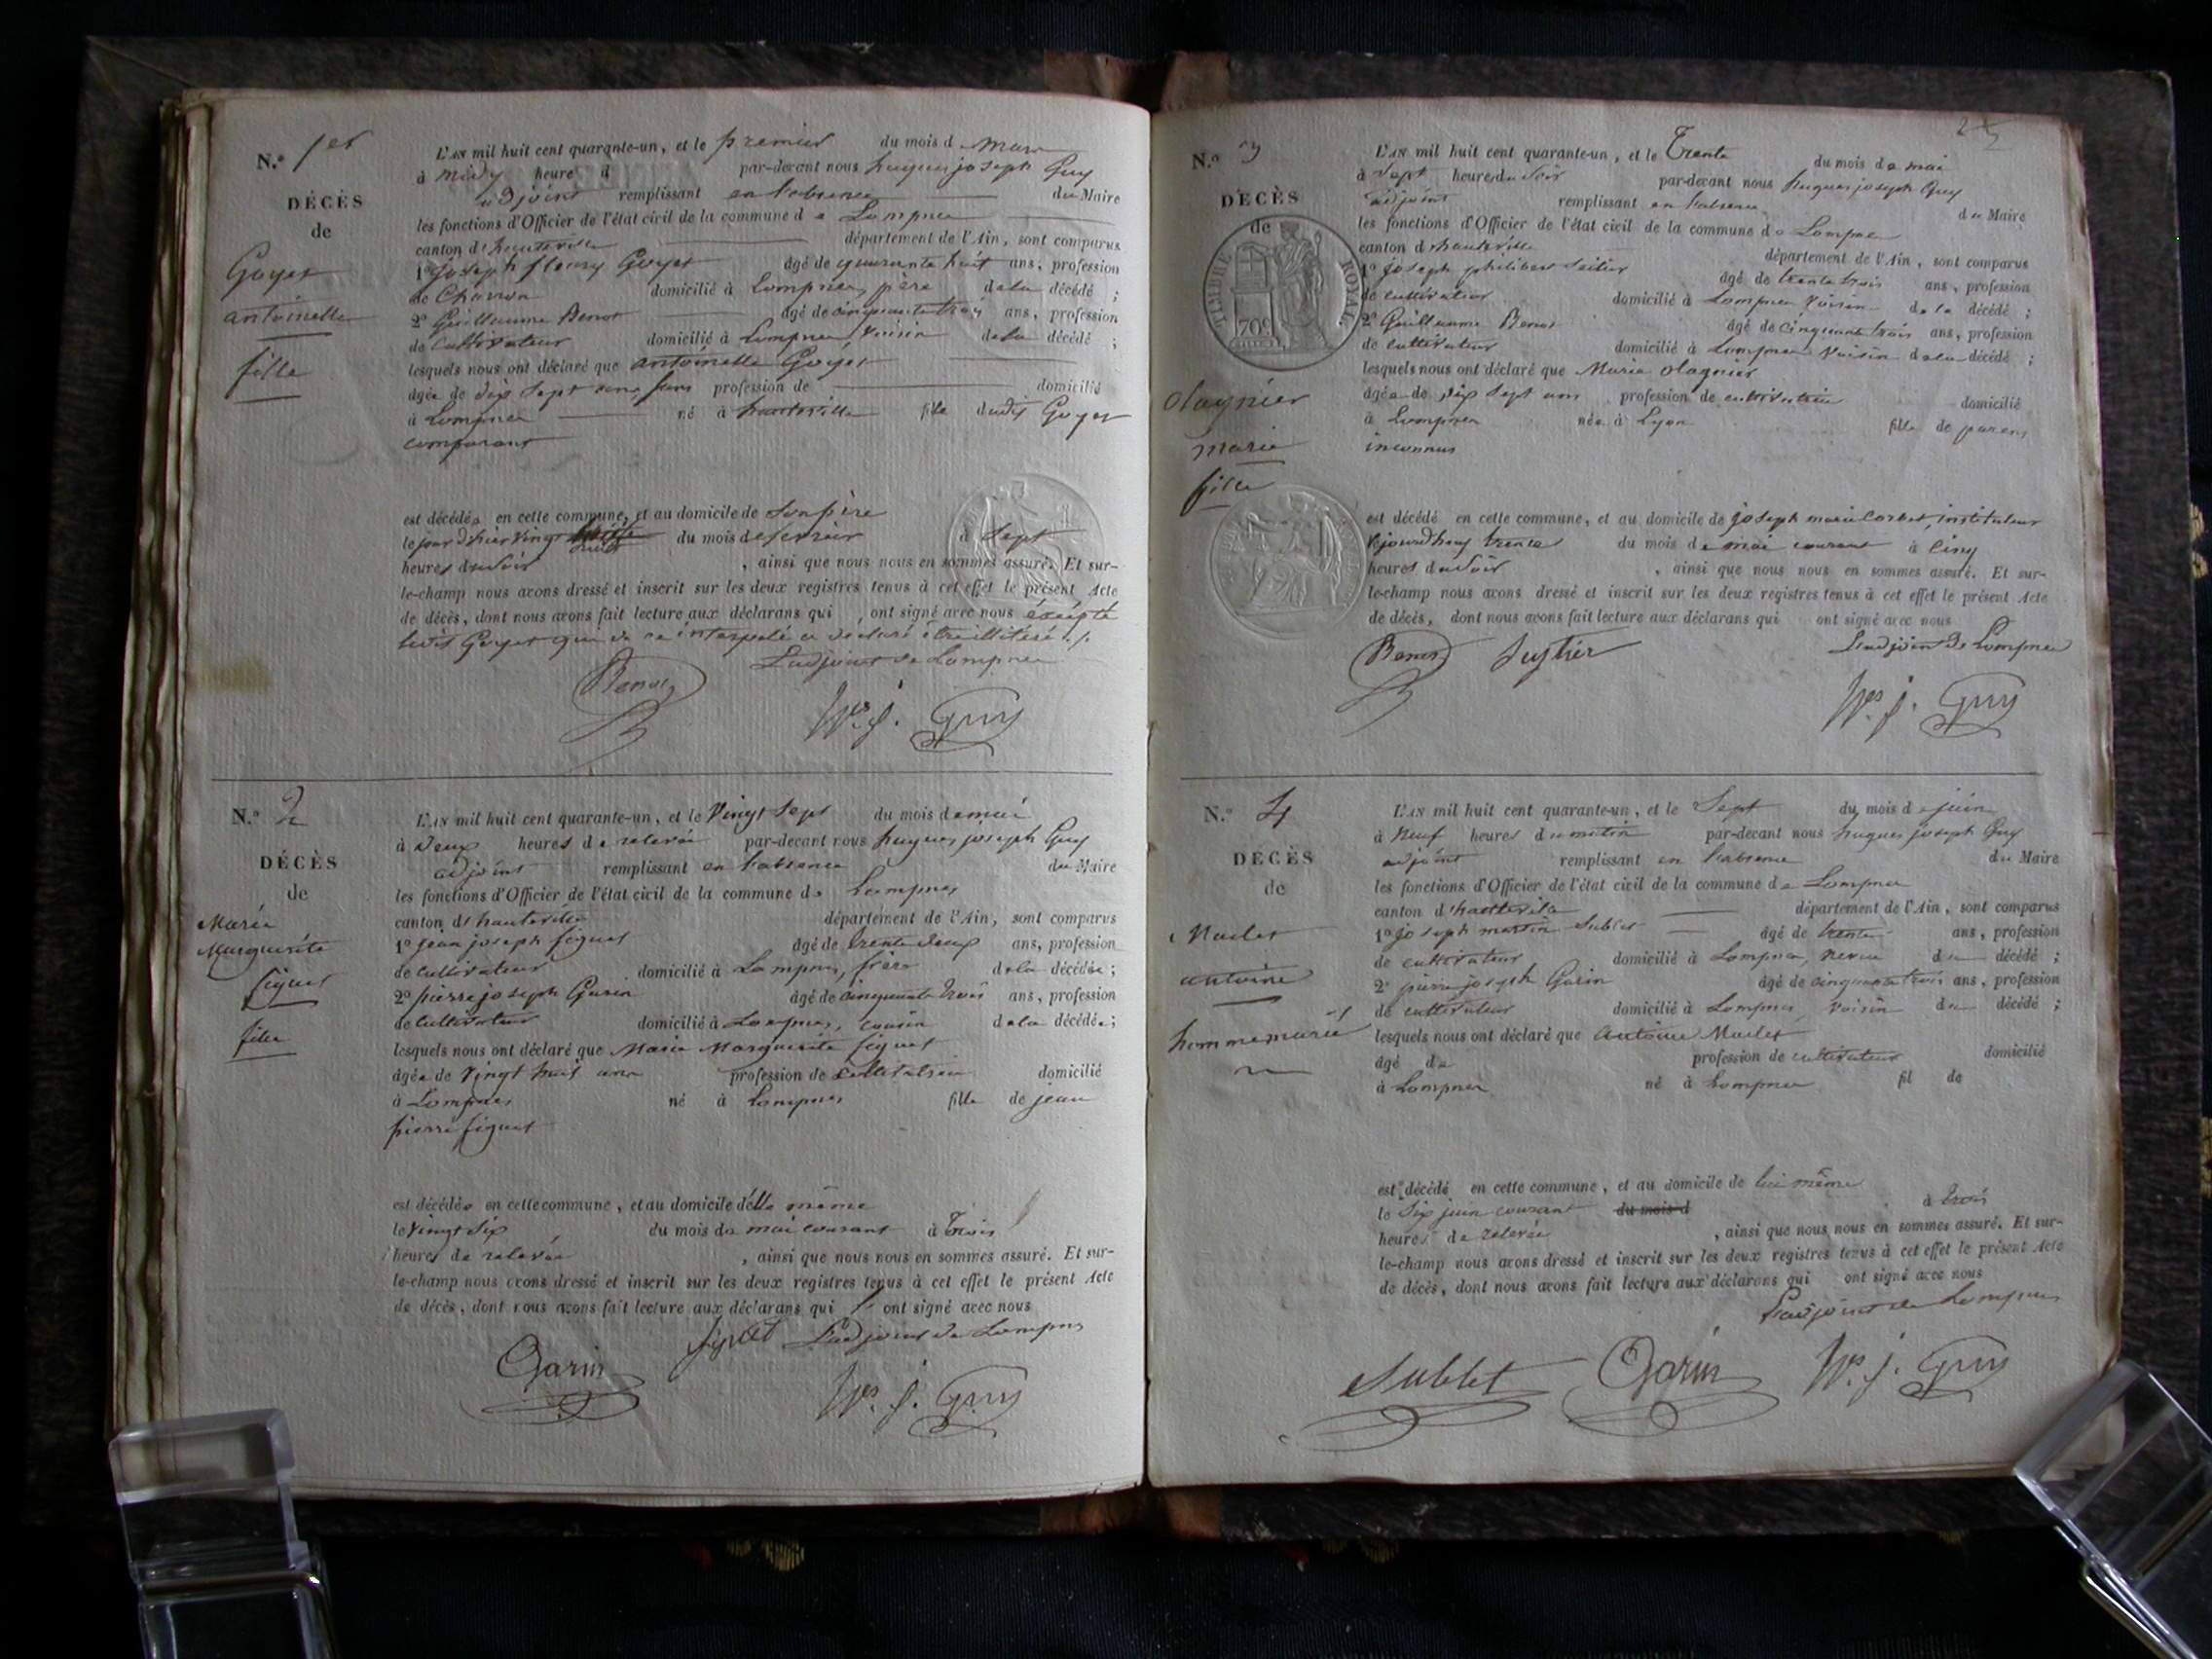 N.° 1er
DÉCÈS
de
Goyet
antoinette
fille
L'AN mil huit cent quarante-un, et le premier du mois de Mars
à midy heure d par-devant nous hugues joseph Guy
adjoint remplissant en l'absence du Maire
les fonctions d'Officier de l'état civil de la commune de Lompnes
canton d'hauteville département de l'Ain, sont comparus
1° joseph fleury Goyet âgé de quarante huit ans, profession
de Charron domicilié à Lompnes, père de la décédé ;
2° Guillaume Benoz âgé de cinquante trois ans, profession
de cultivateur domicilié à Lompnes, voisin de la décédé ;
lesquels nous ont déclaré que antoinette Goyet
âgée de dix sept ans, sans profession de domicilié
à Lompnes né à hauteville fille dudit Goyet
comparant
est décédée en cette commune, et au domicile de son père
le jour d'hier vingt huit du mois de fevrier à Sept
heures du soir , ainsi que nous nous en sommes assuré. Et sur-
le-champ nous avons dressé et inscrit sur les deux registres tenus à cet effet le présent Acte
de décès, dont nous avons fait lecture aux déclarans qui ont signé avec nous excepté
ledit Goyet qui de ce interpelé a déclaré être illitéré ./.
Benoz L'adjoint de Lompnes
Hes. j. Guy
N.° 2
DÉCÈS
de
Marie
Marguerite
figuet
fille
L'AN mil huit cent quarante-un, et le Vingt Sept du mois de mai
à deux heures de relevée par-devant nous hugues joseph Guy
adjoint remplissant en l'absence du Maire
les fonctions d'Officier de l'état civil de la commune de Lompnes
canton d'hauteville département de l'Ain, sont comparus
1° jean joseph figuet âgé de trente deux ans, profession
de cultivateur domicilié à Lompnes, frère de la décédée ;
2° pierre joseph Garin âgé de cinquante trois ans, profession
de cultivateur domicilié à Lompnes, cousin de la décédée ;
lesquels nous ont déclaré que Marie Marguerite figuet
âgée de vingt huit ans profession de cultivatrice domicilié
à Lompnes né à Lompnes fille de jean
pierre figuet
est décédée en cette commune, et au domicile d'elle même
le vingt Six du mois de mai courant à trois
heures de relevée , ainsi que nous nous en sommes assuré. Et sur-
le-champ nous avons dressé et inscrit sur les deux registres tenus à cet effet le présent Acte
de décès, dont nous avons fait lecture aux déclarans qui ont signé avec nous
figuet L'adjoint de Lompnes
Garin Hes. j. Guy
N.° 3
DÉCÈS
de
TIMBRE ROYAL
70c
olagnier
marie
fille
L'AN mil huit cent quarante-un, et le Trente du mois de mai
à Sept heures du soir par-devant nous hugues joseph Guy
adjoint remplissant en l'absence du Maire
les fonctions d'Officier de l'état civil de la commune de Lompnes
canton d'hauteville département de l'Ain, sont comparus
1° joseph philibert âgé de trente trois ans, profession
de cultivateur domicilié à Lompnes voisin de la décédé ;
2° Guillaume Benoz âgé de cinquante trois ans, profession
de cultivateur domicilié à Lompnes voisin de la décédé ;
lesquels nous ont déclaré que Marie olagnier
âgée de dix sept ans profession de cultivatrice domicilié
à Lompnes née à Lyon fille de parens
inconnus
est décédé en cette commune, et au domicile de joseph marie Corbet, instituteur
aujourd'huy trente du mois de mai courant à cinq
heures du soir , ainsi que nous nous en sommes assuré. Et sur-
le-champ nous avons dressé et inscrit sur les deux registres tenus à cet effet le présent Acte
de décès, dont nous avons fait lecture aux déclarans qui ont signé avec nous
Benoz L'adjoint de Lompnes
Hes. j. Guy
N.° 4
DÉCÈS
de
Maclet
antoine
homme marié
L'AN mil huit cent quarante-un, et le Sept du mois de juin
à Neuf heures du matin par-devant nous hugues joseph Guy
adjoint remplissant en l'absence du Maire
les fonctions d'Officier de l'état civil de la commune de Lompnes
canton d'hauteville département de l'Ain, sont comparus
1° joseph martin Sublet âgé de trente ans, profession
de cultivateur domicilié à Lompnes, neveu du décédé ;
2° pierre joseph Garin âgé de cinquante trois ans, profession
de cultivateur domicilié à Lompnes, voisin du décédé ;
lesquels nous ont déclaré que Antoine Maclet
âgé de profession de cultivateur domicilié
à Lompnes né à Lompnes fil de
est décédé en cette commune, et au domicile de lui même
le Six juin courant du mois d à trois
heures de relevée , ainsi que nous nous en sommes assuré. Et sur-
le-champ nous avons dressé et inscrit sur les deux registres tenus à cet effet le présent Acte
de décès, dont nous avons fait lecture aux déclarans qui ont signé avec nous
L'adjoint de Lompnes
Sublet Garin Hes. j. Guy